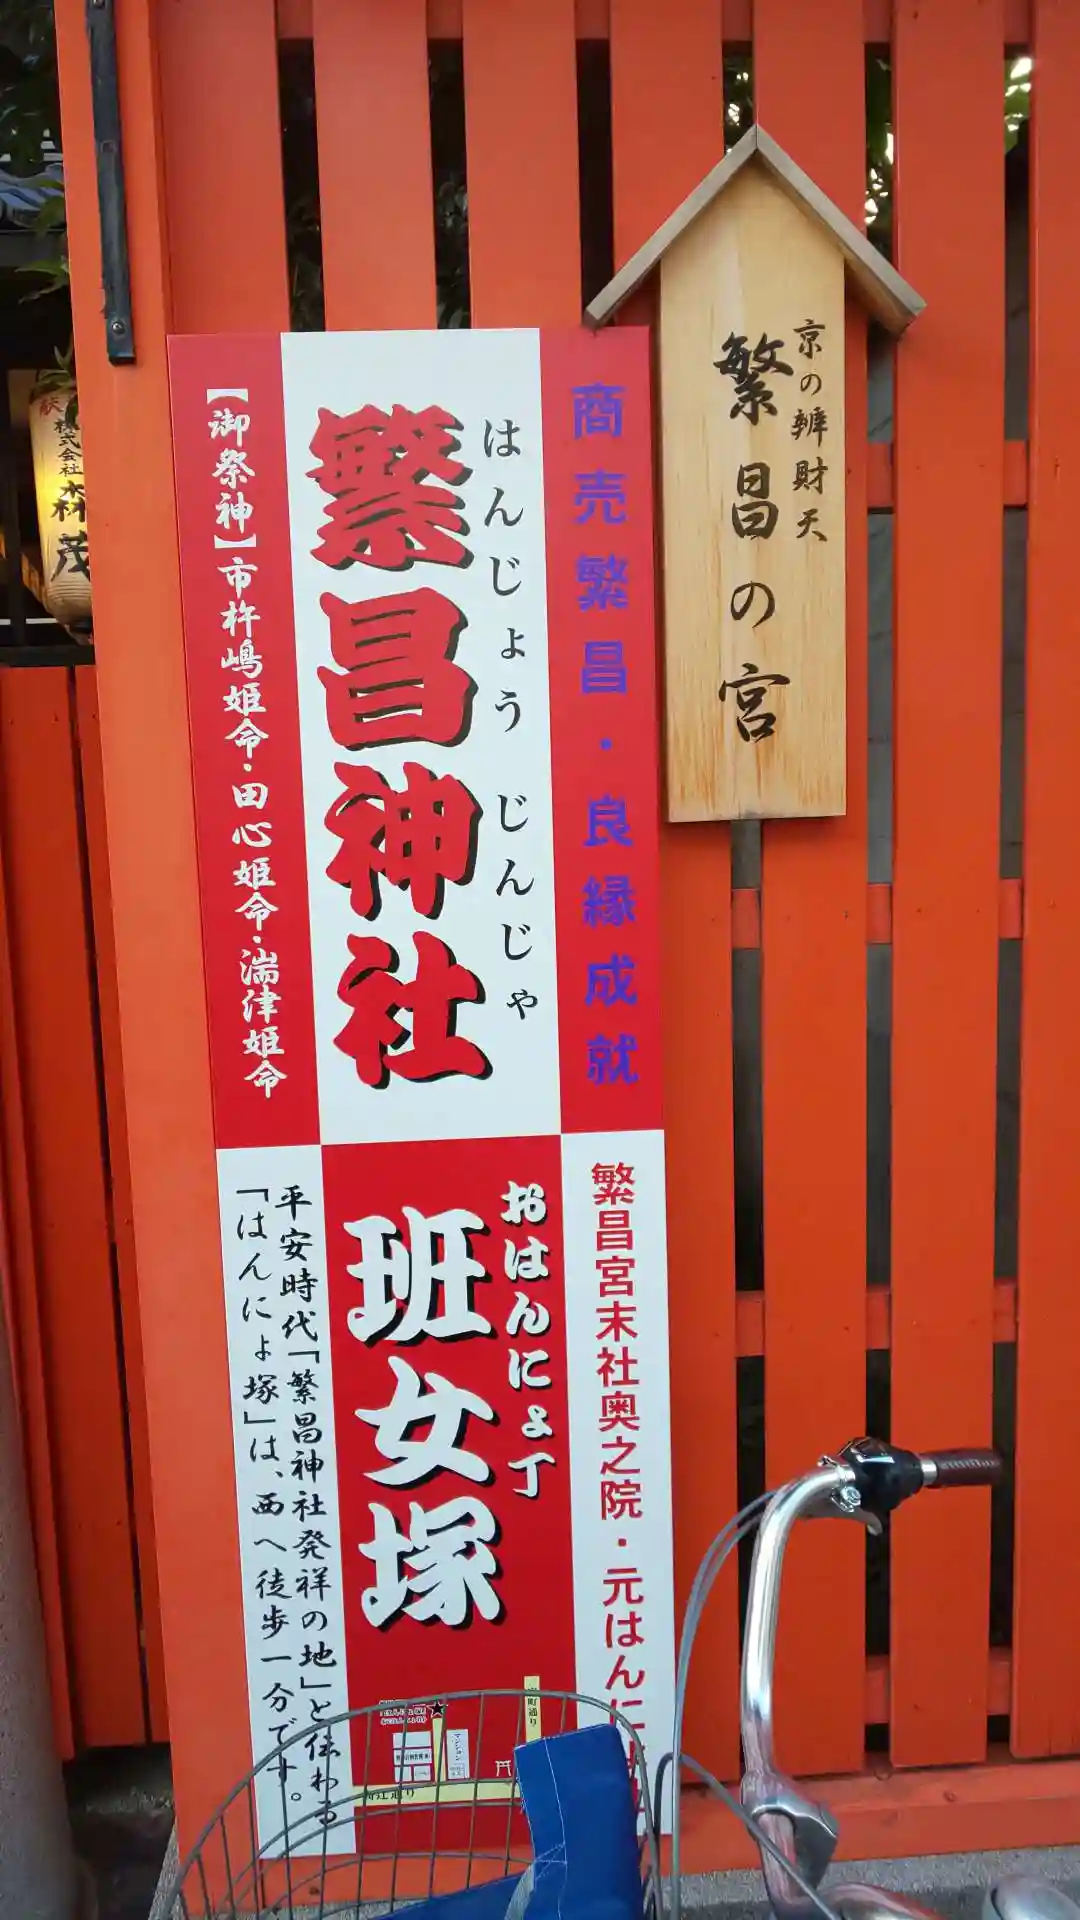 京の辨財天
繁昌の宮
商売繁昌・良縁成就
はんじょう じんじゃ
繁昌神社
【御祭神】市杵嶋姫命・田心姫命・湍津姫命
繁昌宮末社奥之院・元はんに
おはんにょ丁
班女塚
平安時代「繁昌神社発祥の地」と伝わる
「はんにょ塚」は、西へ徒歩一分です。
室町通り
マンション
高辻通り
献
株式会社
木村茂